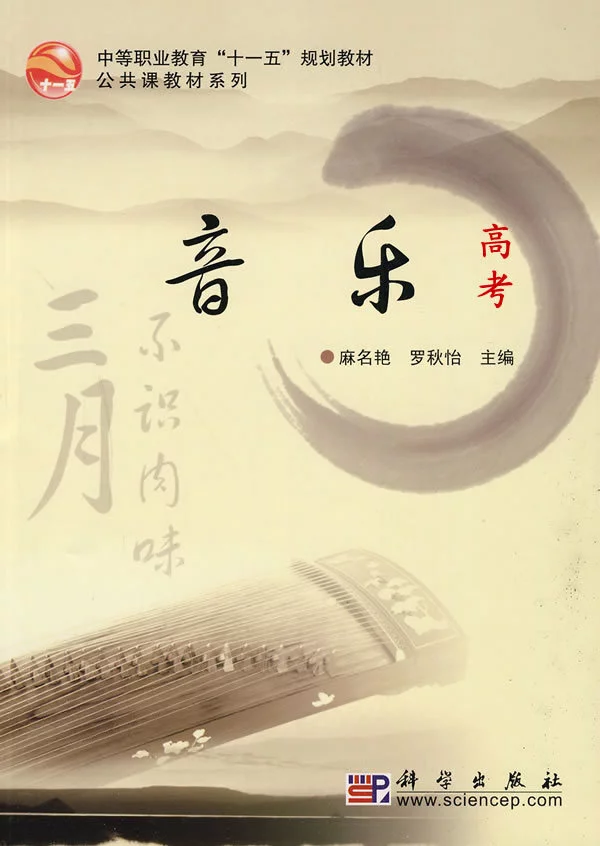 中等职业教育“十一五”规划教材
公共课教材系列
十一五
音 乐
高考
麻名艳 罗秋怡 主编
三月
不识肉味
科学出版社
www.sciencep.com